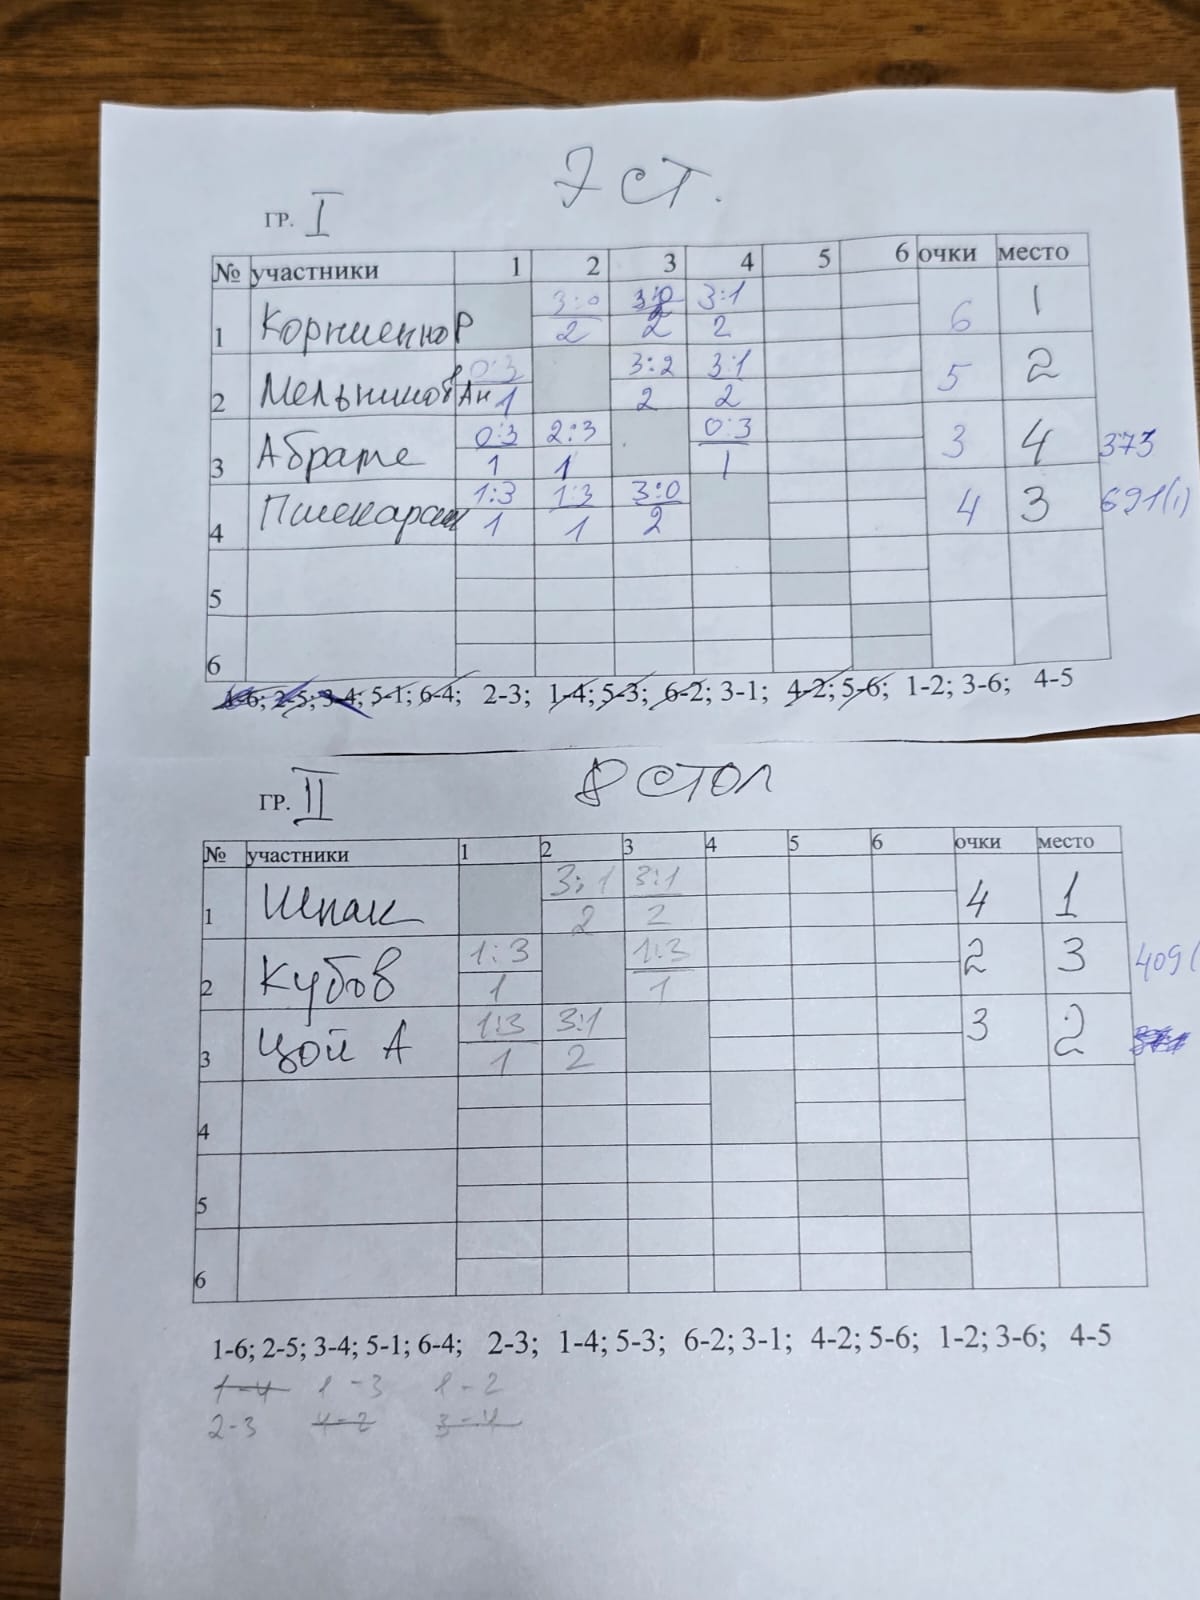 7 ст.
гр. I
№ участники 1 2 3 4 5 6 очки место
1 Корниенко Р 3:0 3:0 3:1 6 1
2 2 2
2 Мельников Ан 0:3 3:2 3:1 5 2
1 2 2
3 Абраме 0:3 2:3 0:3 3 4 373
1 1 1
4 1:3 1:3 3:0 4 3 691(1)
1 1 2
5
6
1-6; 2-5; 3-4; 5-1; 6-4; 2-3; 1-4; 5-3; 6-2; 3-1; 4-2; 5-6; 1-2; 3-6; 4-5
гр. II 8 стол
№ участники 1 2 3 4 5 6 очки место
1 Шпак 3:1 3:1 4 1
2 2
2 Кубов 1:3 1:3 2 3 409(
1 1
3 Цой А 1:3 3:1 3 2
1 2
4
5
6
1-6; 2-5; 3-4; 5-1; 6-4; 2-3; 1-4; 5-3; 6-2; 3-1; 4-2; 5-6; 1-2; 3-6; 4-5
1-4 1-3 1-2
2-3 4-2 3-4